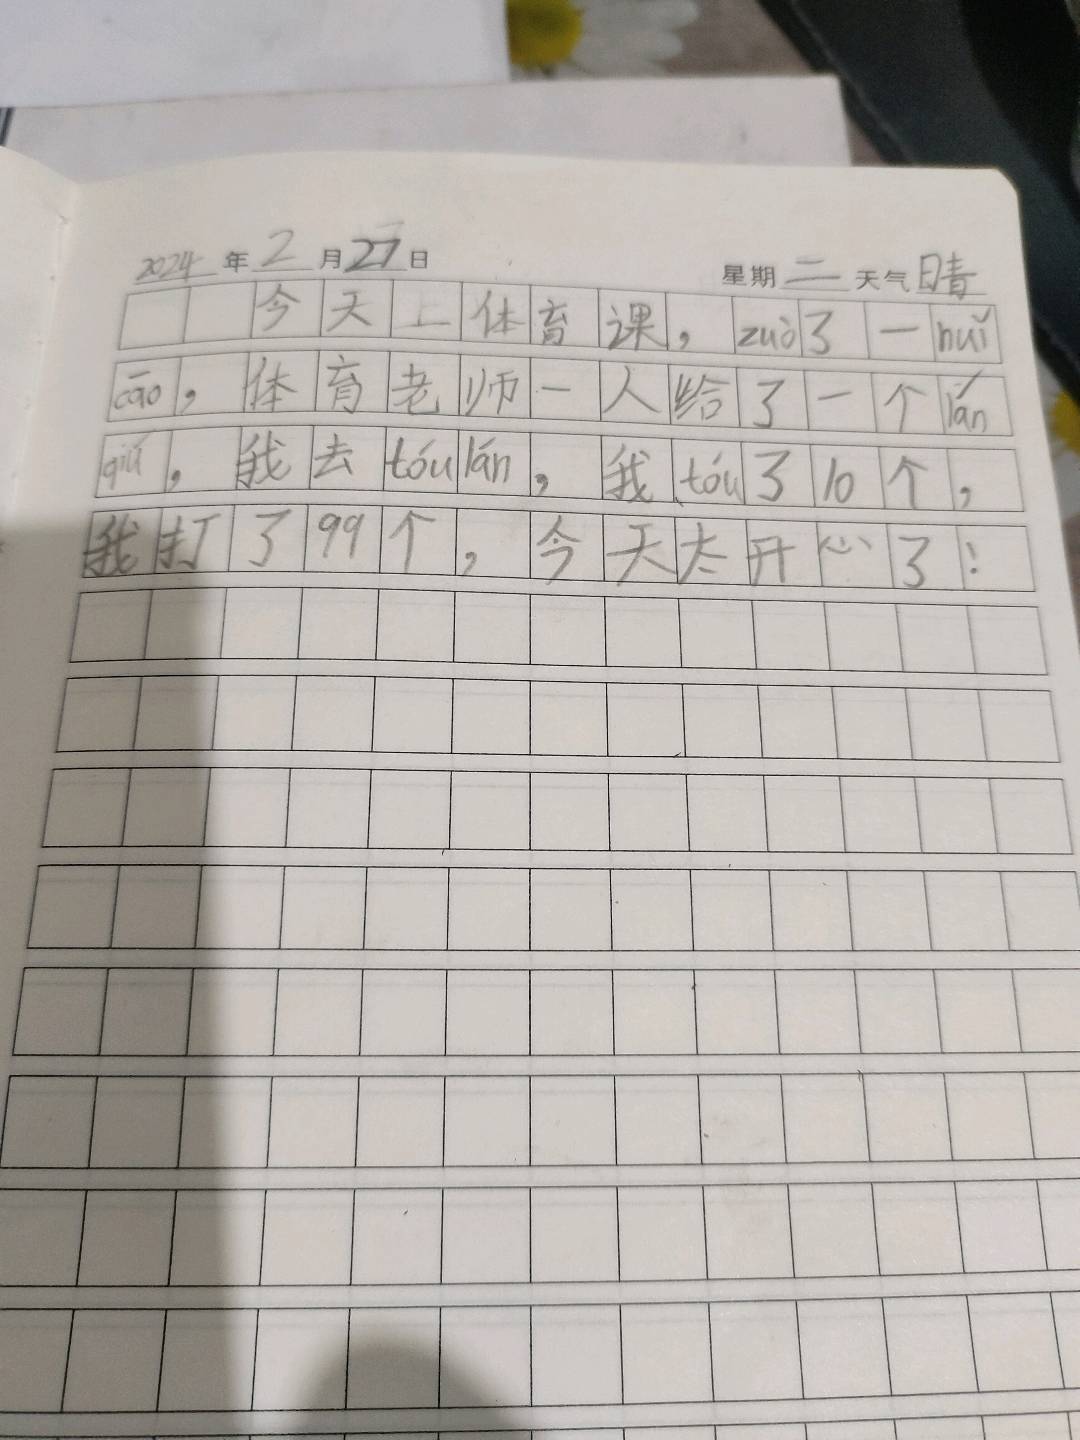 2024年2月27日 星期二 天气晴
今天上体育课，zuò了一huǐ
cāo，体育老师一人给了一个lán
giú，我去tóulán，我tóu了10个，
我打了99个，今天太开心了！